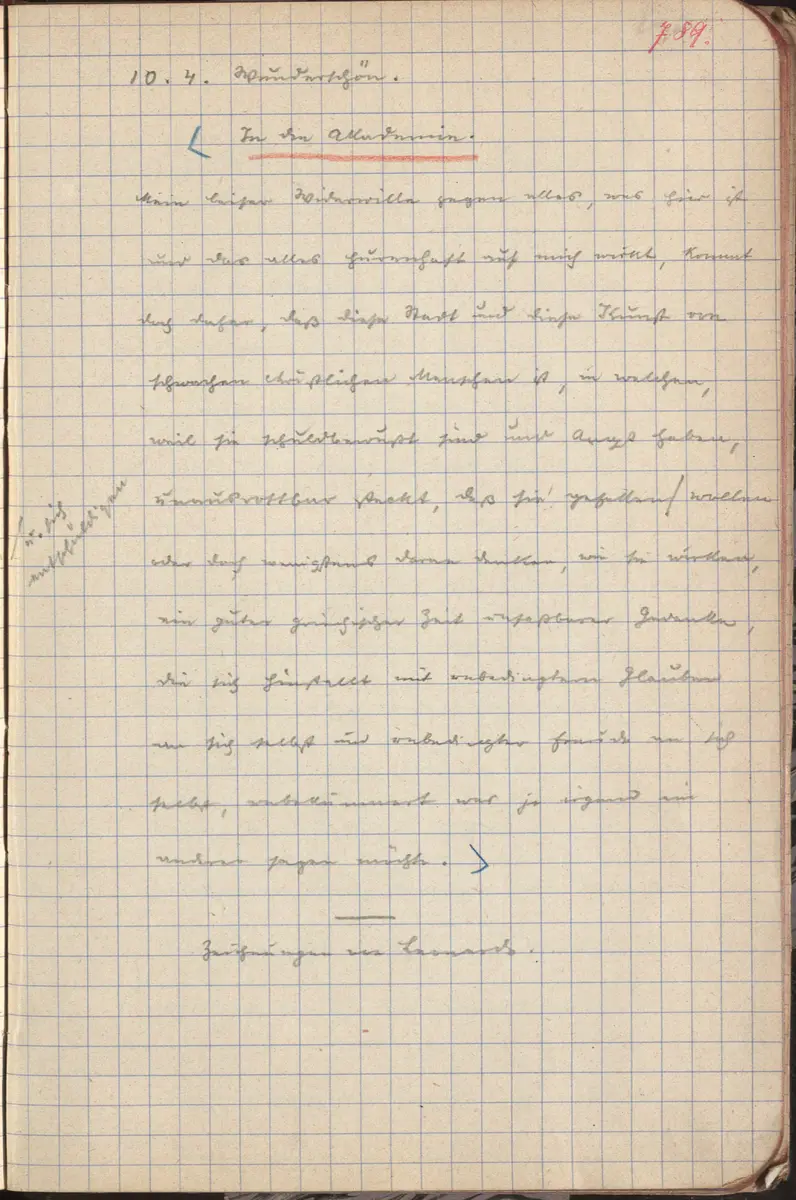 789.
10.4. Wunderschön.
In der Akademie.
Mein leiser Widerwille gegen alles, was hier ist
und das alles hurenhaft auf mich wirkt, kommt
doch daher, daß diese Stadt und diese Kunst von
schwachen christlichen Menschen ist, in welchen,
weil sie schuldbewußt sind und Angst haben,
unausrottbar steckt, daß sie gefallen / wollen
u. sich
entschuldigen
oder doch wenigstens daran denken, wie sie wirken,
ein guter griechischer Zeit unfaßbarer Gedanke,
die sich hinstellt mit unbedingtem Glauben
an sich selbst und unbedingter Freude an sich
selbst, unbekümmert was je irgend ein
anderer sagen möchte.
Zeichnungen von Leonardo.